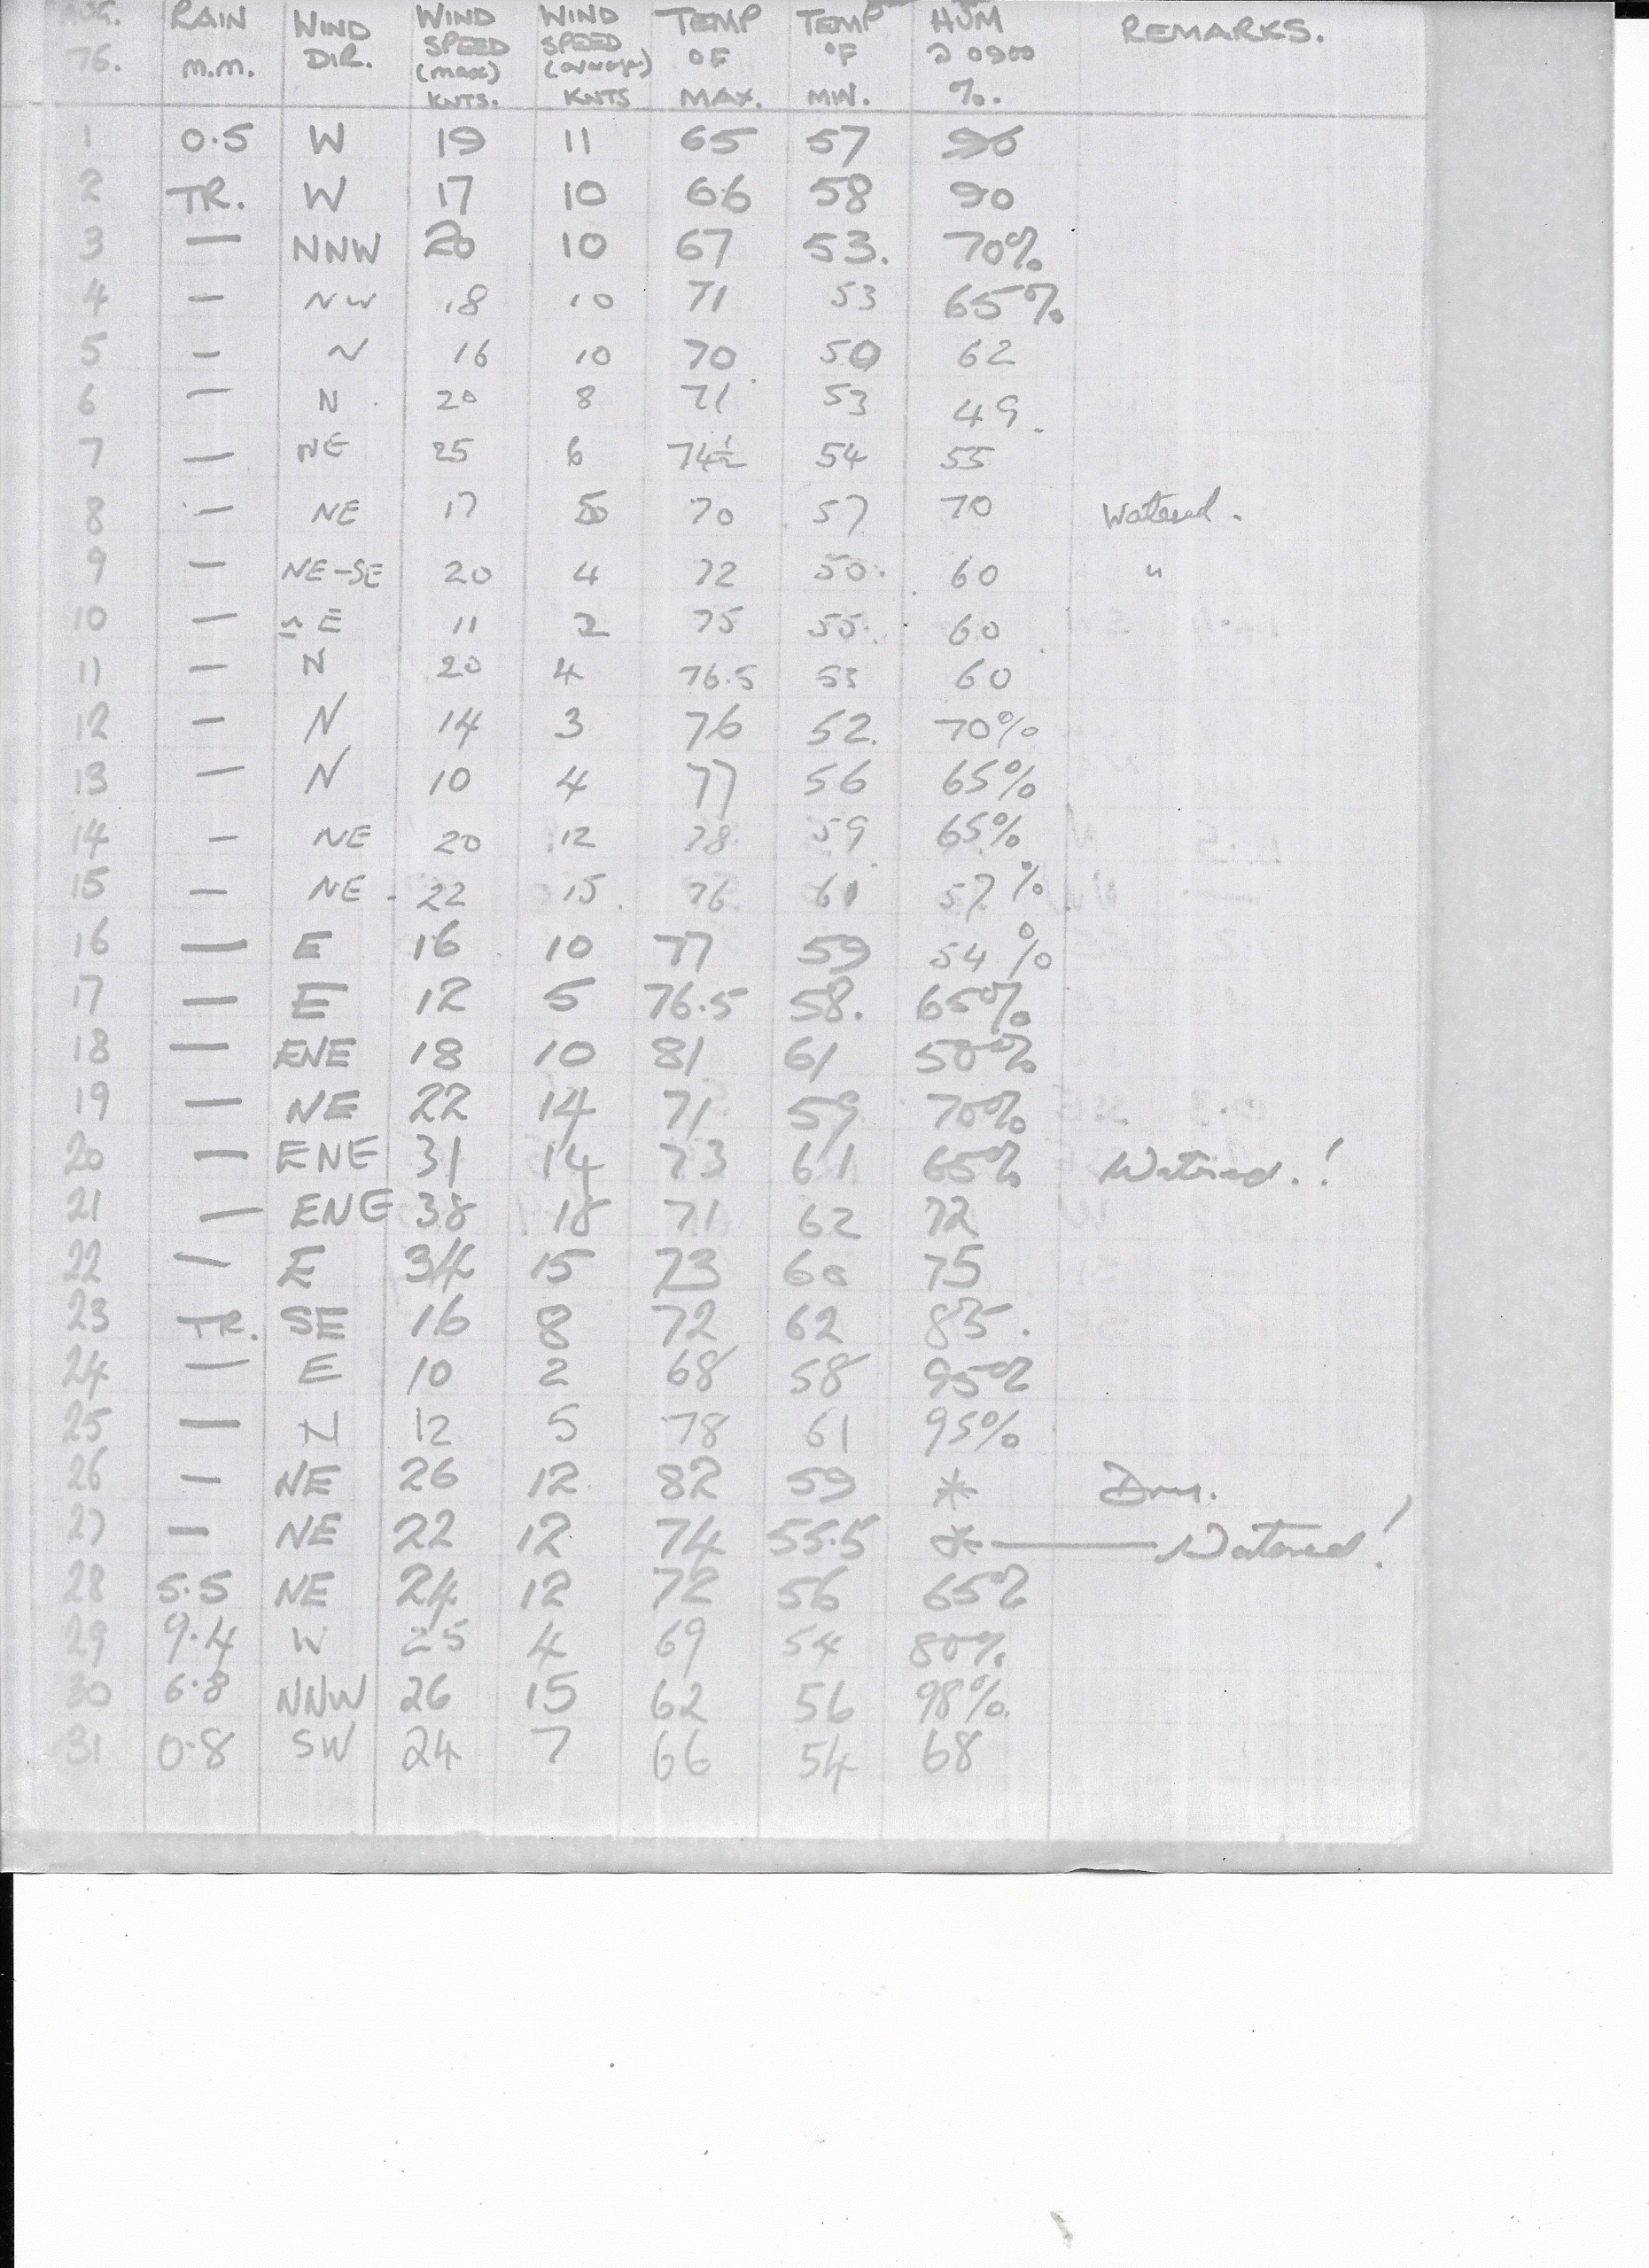 AUG. 76. RAIN m.m. WIND DIR. WIND SPEED (max) KNTS. WIND SPEED (average) KNTS TEMP °F MAX. TEMP °F MIN. HUM @ 0900 %. REMARKS.
1 0.5 W 19 11 65 57
2 TR. W 17 10 66 58 90
3 — NNW 20 10 67 53. 70%
4 — NW 18 10 71 53 65%
5 — N 16 10 70 50 62
6 — N 20 8 71 53 49.
7 — NE 25 6 74½ 54 55
8 — NE 17 5 70 57 70 Watered.
9 — NE-SE 20 4 72 50. 60 "
10 — E 11 2 75 55. 60
11 — N 20 4 76.5 53 60
12 — N 14 3 76 52. 70%
13 — N 10 4 77 56 65%
14 — NE 20 12 78 59 65%
15 — NE 22 15. 76 61 57%
16 — E 16 10 77 59 54%
17 — E 12 5 76.5 58. 65%
18 — ENE 18 10 81 61 50%
19 — NE 22 14 71 59 70%
20 — ENE 31 14 73 61 65% Watered.!
21 — ENE 38 18 71 62 72
22 — E 34 15 73 60 75
23 TR. SE 16 8 72 62 85.
24 — E 10 2 68 58 95%
25 — N 12 5 78 61 95%
26 — NE 26 12 82 59 *
27 — NE 22 12 74 55.5 * — Watered!
28 5.5 NE 24 12 72 56 65%
29 9.4 W 25 4 69 54 80%
30 6.8 NNW 26 15 62 56 98%.
31 0.8 SW 24 7 66 54 68